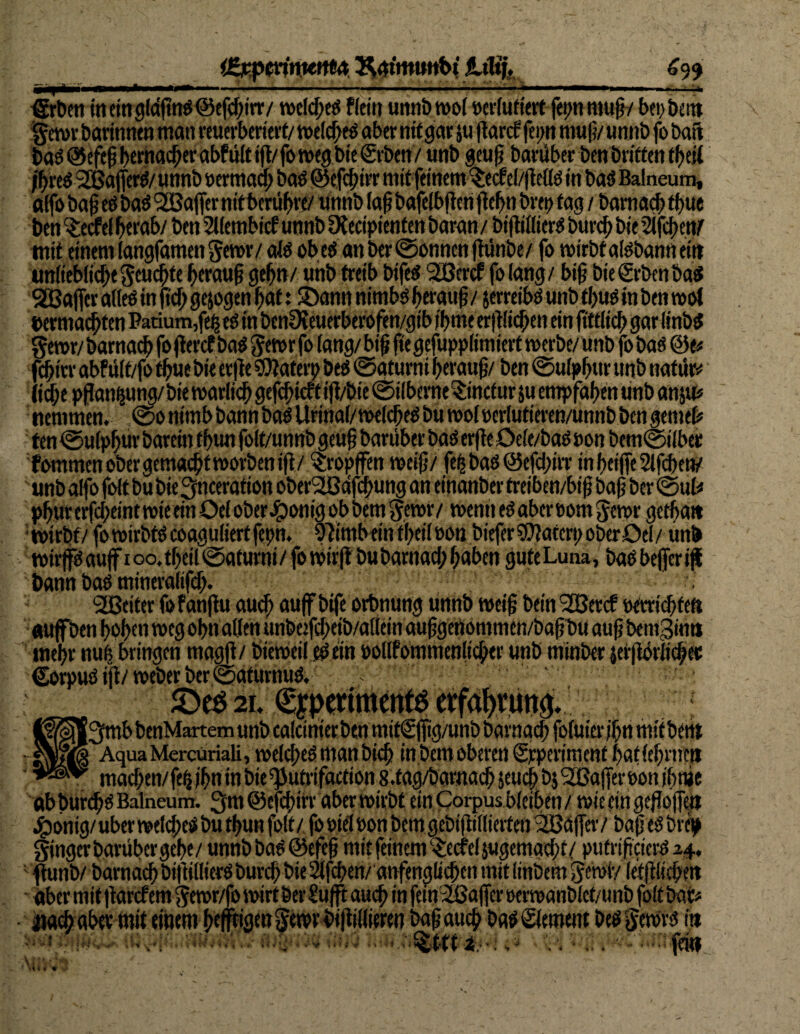 Experimenta Raimundi Lulij. 699
Erden in ein gläsins Geschirr/ welches klein unnd wol verlutiert seyn muß/ bey dem
Fewr darinnen man reuerberiert/ welches aber nit gar zu starck seyn muß/ unnd so bald
das Gefeß hernacher abkült ist/ so weg die Erden/ und geuß darüber den dritten theil
ihres Wassers/ unnd vermach das Geschirr mit seinem Deckel/stells in das Balneum,
also daß es das Wasser nit berühre/ unnd laß daselbsten stehn drey tag / darnach thue
den Deckel herab/ den Alembick unnd Recipienten daran / distilliers durch die Aschen/
mit einem langsamen Fewr / als ob es an der Sonnen stünde / so wirdt alsdann ein
unliebliche Feuchte herauß gehn/ und treib dises Werck so lang / biß die Erden das
Wasser alles in sich gezogen hat: Dann nimbs herauß / zerreibs und thus in den wol
vermachten Patium, setz es in den Reuerberofen/gib ihme erstlichen ein sittlich gar linds
Fewr/ darnach so sterck das Fewr so lang/ biß sie gesupplimiert werde/ und so das Ge-
schirr abkült/so thue die erste Matery des Saturni herauß/ den Sulphur und natür-
liche pflantzung/ die warlich geschickt ist/die Silberne Tinctur zu empfahen und anzu-
nemmen. So nimb dann das Urinal/welches du wol verlutieren/unnd den gemel-
ten Sulphur darein thun solt/unnd geuß darüber das erste Oele/das von dem Silber
kommen oder gemacht worden ist / Tropffen weiß/ setz das Geschirr in heisse Aschen/
und also solt du die Inceration oder Wäschung an einander treiben/biß daß der Sul-
phur erscheint wie ein Oel oder Honig ob dem Fewr / wenn es aber vom Fewr gethan
wirdt/ so wirdts coaguliert seyn. Nimb ein theil von dieser Matery oder Oel/ und
wirffs auff 100. theil Saturni/ so wirst du darnach haben gute Luna, das besser ist
dann das mineralisch.
Weiter so kanstu auch auff dise ordnung unnd weiß dein Werck verrichten
auff den hohen weg ohn allen underscheid/allein außgenommen/daß du auß dem Zinn
mehr nutz bringen magst/ dieweil es ein vollkommenlicher und minder zerstörlicher
Corpus ist/ weder der Saturnus.
Des 21. Experiments erfahrung.
Nimb den Martem und calcinier den mit Essig/unnd darnach soluier ihn mit dem
Aqua Mercuriali, welches man dich in dem oberen Experiment hat lehrnen
machen/setz ihn in die Putrifaction 8.tag/darnach zeuch dz Wasser von ihme
ab durchs Balneum. Im Geschirr aber wirdt ein Corpus bleiben / wie ein geflossen
Honig/ uber welches du thun solt / so viel von dem gedistillierten Wasser / daß es drey
Finger darüber gehe/ unnd das Gefeß mit seinem Deckel zugemacht / putrificiers 24.
stund/ darnach distilliers durch die Aschen/ anfenglichen mit lindem Fewr/ letstlichen
aber mit starckem Fewr/so wirt der Lufft auch in sein Wasser verwandlet/und solt dar-
nach aber mit einem hefftigen Fewr distillieren daß auch das Element des Fewrs in
Tttt 2 sein